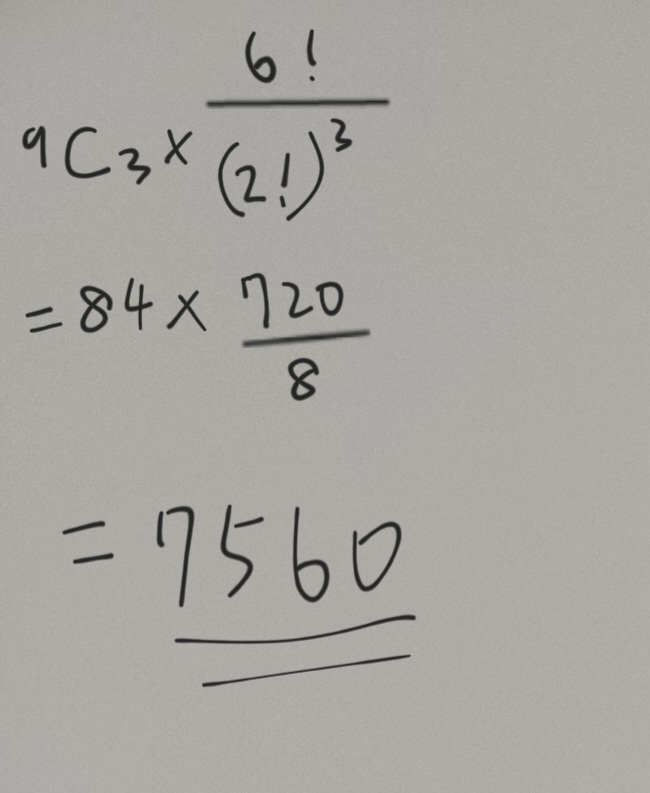 9C3 × 6! / (2!)^3
= 84 × 720 / 8
= 7560